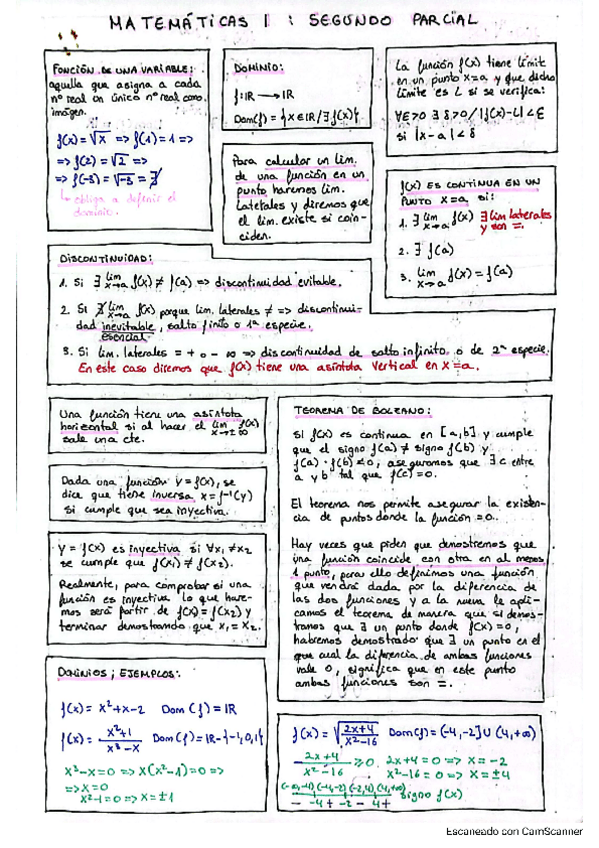 MATEMÁTICAS I : SEGUNDO PARCIAL
FUNCIÓN DE UNA VARIABLE:
aquella que asigna a cada
nº real un único nº real como
imagen.
f(x) = √x => f(1) = 1 =>
=> f(2) = √2 =>
=> f(-3) = √-3 = ∄
↳ obliga a definir el
dominio.
DOMINIO:
f: ℝ → ℝ
Dom(f) = {x ∈ ℝ / ∃ f(x)}
Para calcular un lim.
de una función en un
punto haremos lim.
laterales y diremos que
el lim. existe si coin-
ciden.
La función f(x) tiene límite
en un punto x=a y que dicho
límite es L si se verifica:
∀ε>0 ∃ δ>0 / |f(x)-L| < ε
si |x-a| < δ
f(x) ES CONTINUA EN UN
PUNTO x=a si:
1. ∃ lim x→a f(x) ∃ lim laterales
y son =.
2. ∃ f(a)
3. lim x→a f(x) = f(a)
DISCONTINUIDAD:
1. Si ∃ lim x→a f(x) ≠ f(a) => discontinuidad evitable.
2. Si ∄ lim x→a f(x) porque lim. laterales ≠ => discontinui-
dad inevitable, salto finito o 1ª especie.
esencial
3. Si lim. laterales = + o - ∞ => discontinuidad de salto infinito o de 2ª especie.
En este caso diremos que f(x) tiene una asíntota vertical en x=a.
Una función tiene una asíntota
horizontal si al hacer el lim x→±∞ f(x)
sale una cte.
Dada una función y = f(x), se
dice que tiene inversa x = f⁻¹(y)
si cumple que sea inyectiva.
y = f(x) es inyectiva si ∀x₁ ≠ x₂
se cumple que f(x₁) ≠ f(x₂).
Realmente, para comprobar si una
función es inyectiva lo que hare-
mos será partir de f(x₁) = f(x₂) y
terminar demostrando que x₁ = x₂.
TEOREMA DE BOLZANO:
Si f(x) es continua en [a,b] y cumple
que el signo f(a) ≠ signo f(b) y
f(a) · f(b) ≤ 0, aseguramos que ∃ c entre
a y b tal que f(c) = 0.
El teorema nos permite asegurar la existen-
cia de puntos donde la función = 0.
Hay veces que piden que demostremos que
una función coincide con otra en al menos
1 punto, para ello definimos una función
que vendrá dada por la diferencia de
las dos funciones y a la nueva le apli-
camos el teorema de manera que si demos-
tramos que ∃ un punto donde f(x) = 0,
habremos demostrado que ∃ un punto en el
que cual la diferencia de ambas funciones
vale 0, significa que en este punto
ambas funciones son =.
DOMINIOS; EJEMPLOS:
f(x) = x²+x-2 Dom(f) = ℝ
f(x) = x²+1 / x³-x Dom(f) = ℝ-{-1,0,1}
x³-x=0 => x(x²-1)=0 =>
=> x=0
x²-1=0 => x=±1
f(x) = √(2x+4 / x²-16) Dom(f) = (-4,-2] ∪ (4,+∞)
2x+4 / x²-16 ≥ 0. 2x+4=0 => x=-2
x²-16=0 => x=±4
(-∞,-4)(-4,-2)(-2,4)(4,+∞)
- -4 + -2 - 4 + signo f(x)
Escaneado con CamScanner